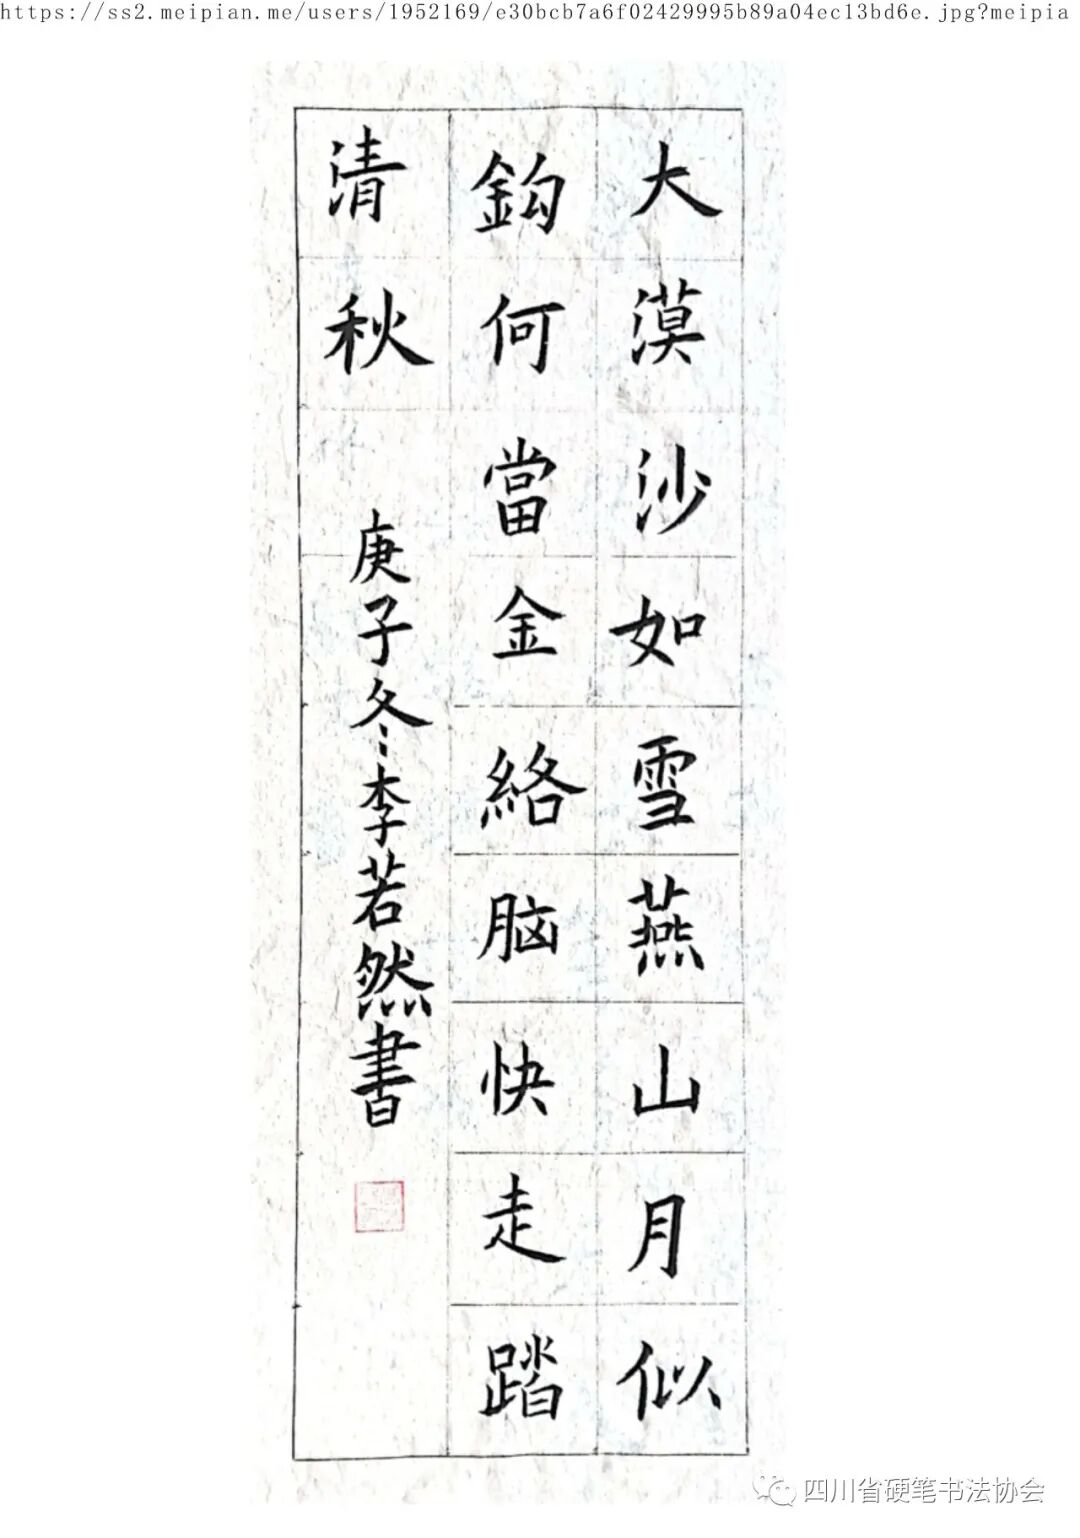 https://ss2.meipian.me/users/1952169/e30bcb7a6f02429995b89a04ec13bd6e.jpg?meipia
大漠沙如雪燕山月似
鈎何當金絡脑快走踏
清秋
庚子冬李若然書
四川省硬笔书法协会